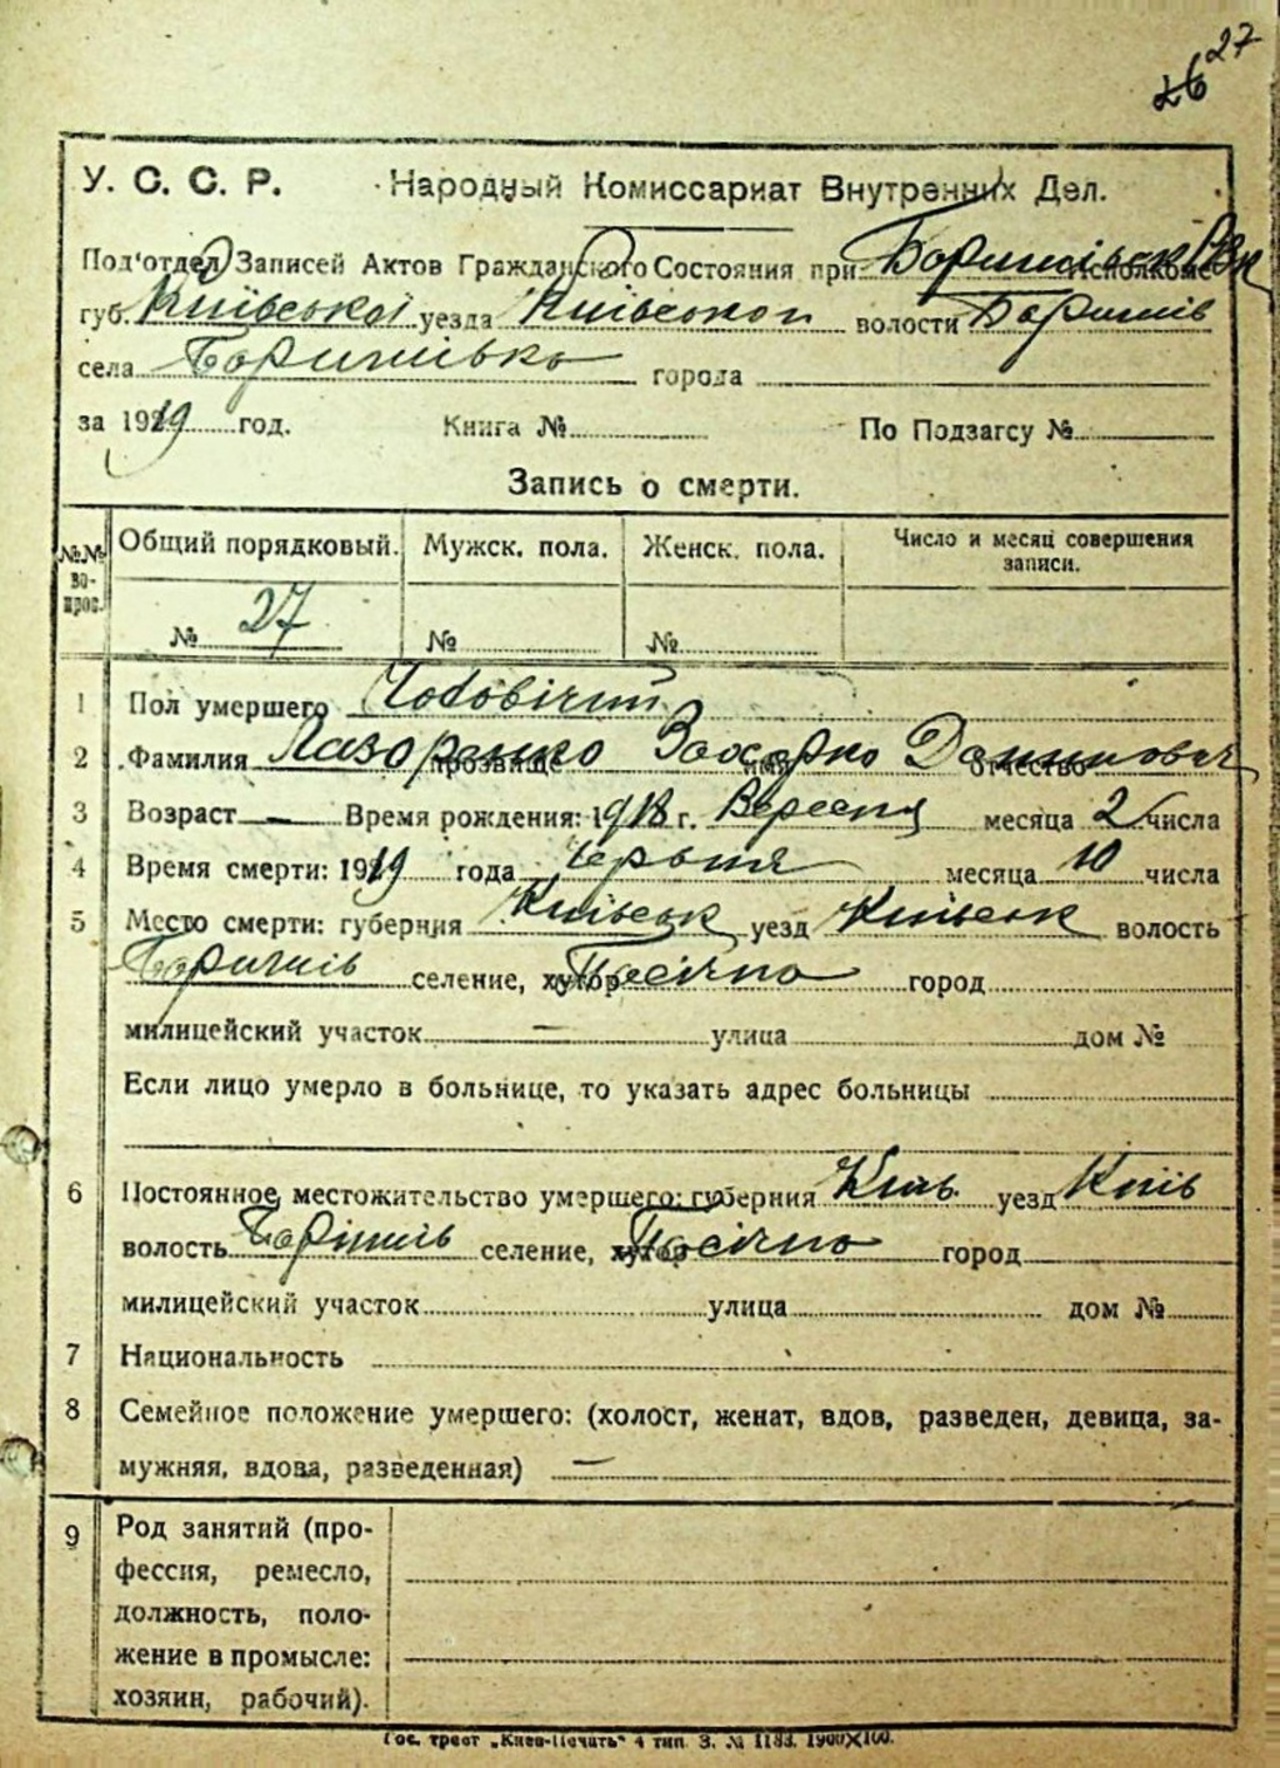 27
26
У. С. С. Р. Народный Комиссариат Внутренних Дел.
Под'отдел Записей Актов Гражданского Состояния при исполкоме
губ. Київської уезда Київської волости Боришпів
села города
за 1919 год. Книга № По Подзагсу №
Запись о смерти.
№№ вопрос. Общий порядковый. Мужск. пола. Женск. пола. Число и месяц совершения записи.
№ 27 № №
1 Пол умершего Чоловічий
2 Фамилия Лазоренко прозвище Захарко имя Данилович отчество
3 Возраст — Время рождения: 1918 г. Вересня месяца 2 числа
4 Время смерти: 1919 года Червня месяца 10 числа
5 Место смерти: губерния Київськ уезд Київськ волость
селение, хутор Пасічна город
милицейский участок — улица дом №
Если лицо умерло в больнице, то указать адрес больницы
6 Постоянное местожительство умершего: губерния Київ. уезд Київ
волость селение, хутор Пасічна город
милицейский участок улица дом №
7 Национальность
8 Семейное положение умершего: (холост, женат, вдов, разведен, девица, за-
мужняя, вдова, разведенная) —
9 Род занятий (про-
фессия, ремесло,
должность, поло-
жение в промысле:
хозяин, рабочий).
Гос. трест „Киев-Печать" 4 тип. З. № 1183. 1900×100.